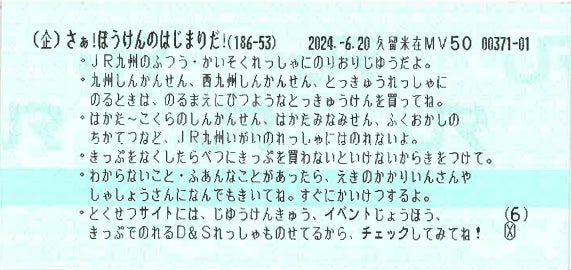 (企)さぁ!ぼうけんのはじまりだ!(186-53) 2024.-6.20 久留米在MV50 00371-01
*JR九州のふつう・かいそくれっしゃにのりおりじゆうだよ。
*九州しんかんせん、西九州しんかんせん、とっきゅうれっしゃに
のるときは、のるまえにひつようなとっきゅうけんを買ってね。
*はかた~こくらのしんかんせん、はかたみなみせん、ふくおかしの
ちかてつなど、JR九州いがいのれっしゃにはのれないよ。
*きっぷをなくしたらべつにきっぷを買わないといけないからきをつけて。
*わからないこと・ふあんなことがあったら、えきのかかりいんさんや
しゃしょうさんになんでもきいてね。すぐにかいけつするよ。
*とくせつサイトには、じゆうけんきゅう、イベントじょうほう、 (6)
きっぷでのれるD&Sれっしゃものせてるから、チェックしてみてね!